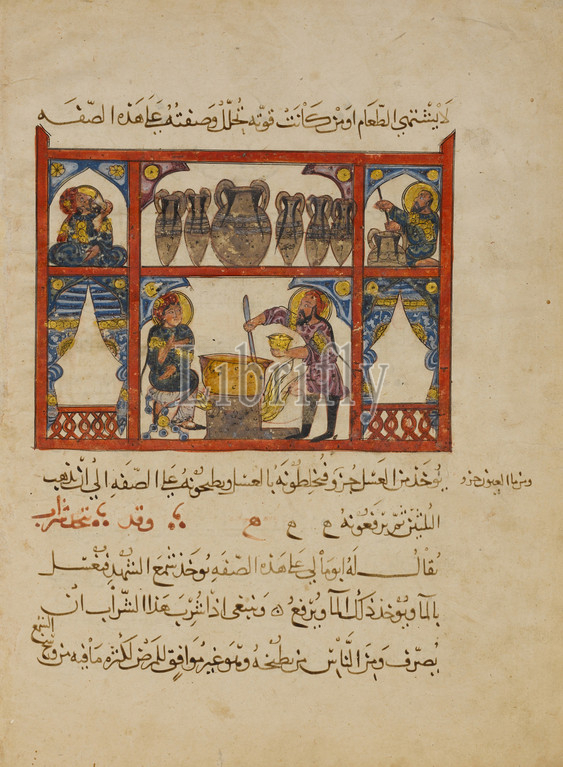 لا يشتهي الطعام او من كانت قوته تحلل وصفته على هذه الصفه
Librifly
يؤخذ من العسل جزو فيخلطونه بالعسل ويطبخونه على الصفه الى ان يذهب
ومن ما العيون جزو
الثلثين ثم يرفعونه ح ح ح وقد يتخذ شراب
يقال له ابومالي على هذه الصفه يؤخذ شمع الشهد فيغسل
بالما ويؤخذ ذلك الما ويرفع وينبغي اذا شرب هذا الشراب ان
يصرف ومن الناس من يطبخه وهو غير موافق للمرض لكثره ما فيه من وسخ
الشمع